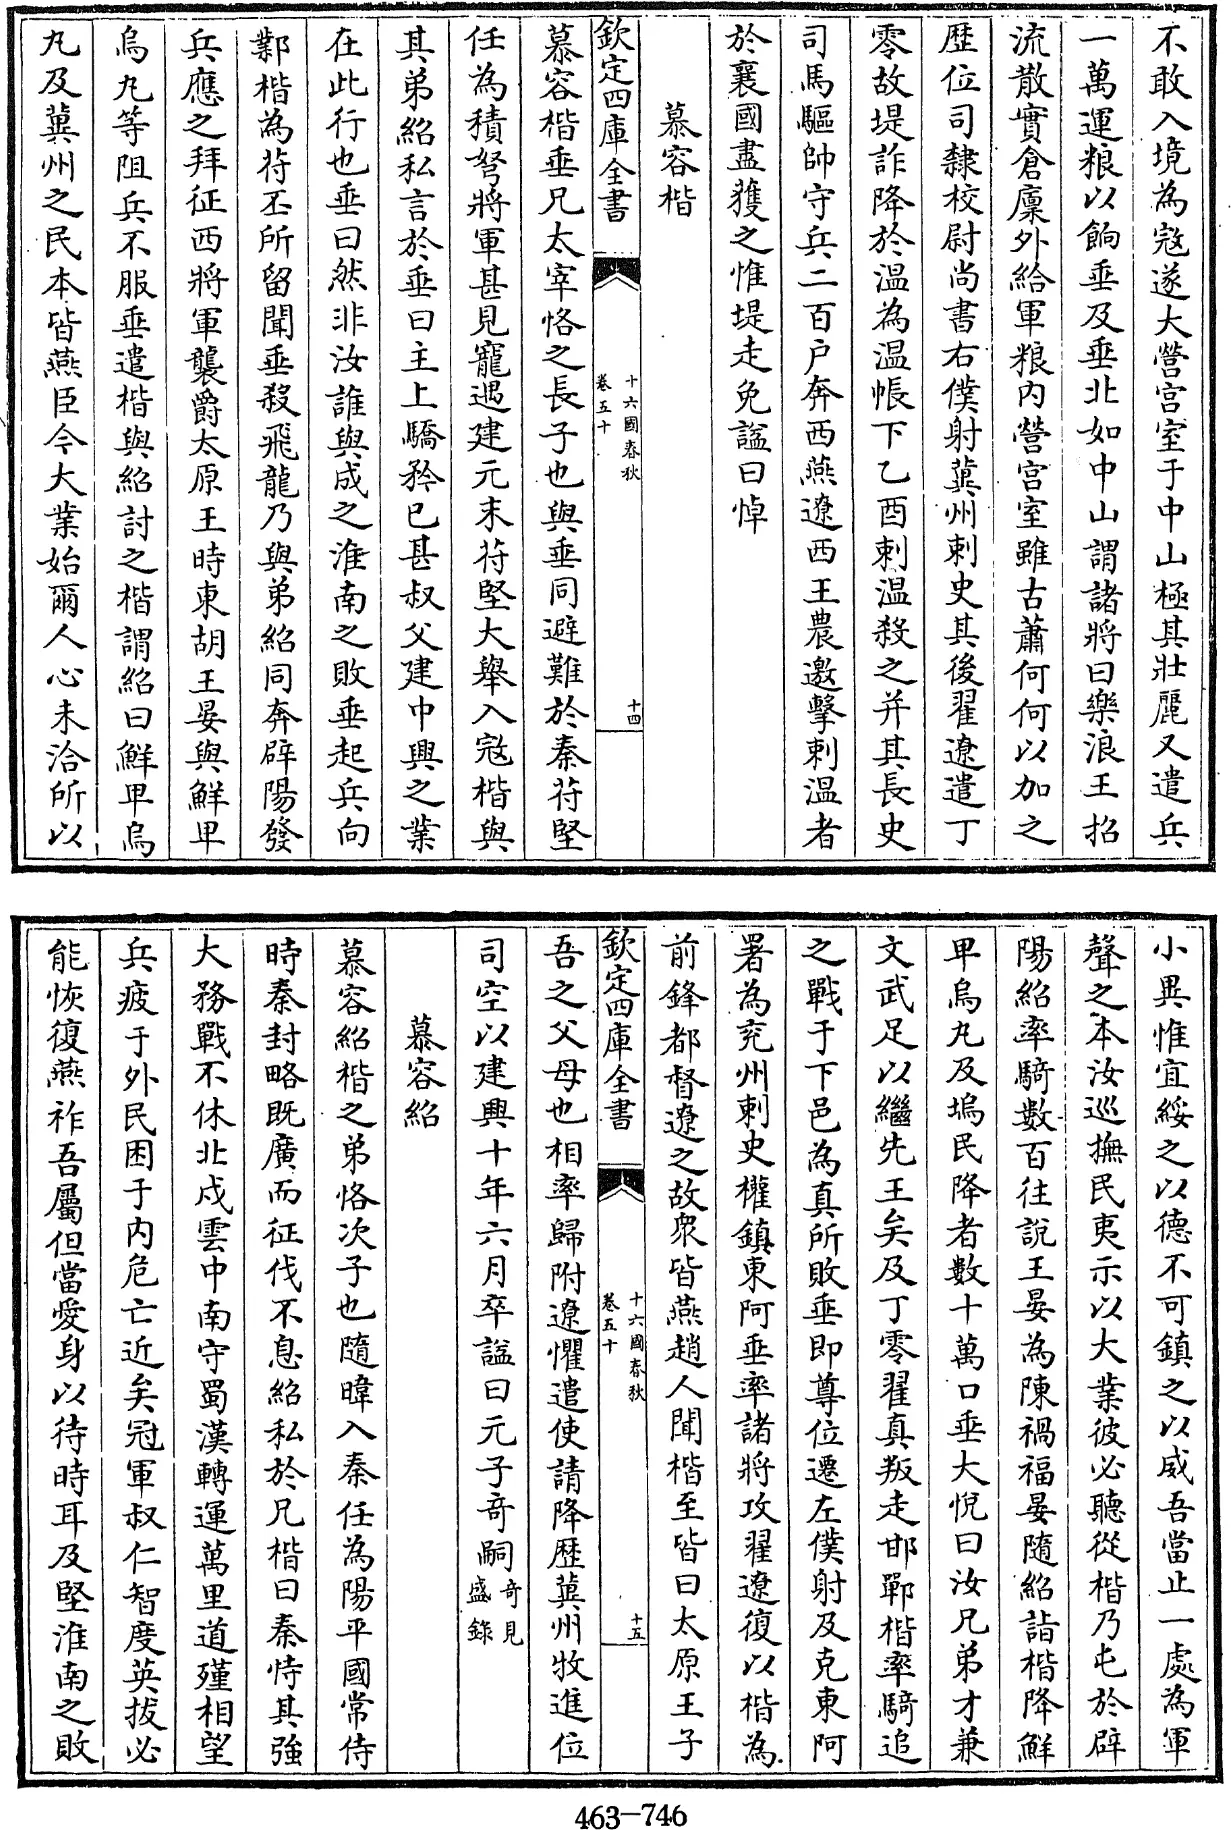 不敢入境為寇遂大營宮室于中山極其壯麗又遣兵
一萬運粮以餉垂及垂北如中山謂諸將曰樂浪王招
流散實倉廩外給軍粮内營宮室雖古蕭何何以加之
歷位司隸校尉尚書右僕射冀州刺史其後翟遼遣丁
零故堤詐降於溫為溫帳下乙酉刺溫殺之并其長史
司馬驅帥守兵二百户奔西燕遼西王農邀擊刺溫者
於襄國盡獲之惟堤走免諡曰悼
慕容楷
欽定四庫全書
十六國春秋
卷五十
十四
慕容楷垂兄太宰恪之長子也與垂同避難於秦苻堅
任為積弩將軍甚見寵遇建元末苻堅大舉入寇楷與
其弟紹私言於垂曰主上驕矜已甚叔父建中興之業
在此行也垂曰然非汝誰與成之淮南之敗垂起兵向
鄴楷為苻丕所留聞垂殺飛龍乃與弟紹同奔辟陽發
兵應之拜征西將軍襲爵太原王時東胡王晏與鮮卑
烏丸等阻兵不服垂遣楷與紹討之楷謂紹曰鮮卑烏
丸及冀州之民本皆燕臣今大業始爾人心未洽所以
小異惟宜綏之以德不可鎮之以威吾當止一處為軍
聲之本汝巡撫民夷示以大業彼必聽從楷乃屯於辟
陽紹率騎數百往說王晏為陳禍福晏隨紹詣楷降鮮
卑烏丸及塢民降者數十萬口垂大悅曰汝兄弟才兼
文武足以繼先王矣及丁零翟真叛走邯鄲楷率騎追
之戰于下邑為真所敗垂即尊位遷左僕射及克東阿
署為兖州刺史權鎮東阿垂率諸將攻翟遼復以楷為
前鋒都督遼之故衆皆燕趙人聞楷至皆曰太原王子
欽定四庫全書
十六國春秋
卷五十
十五
吾之父母也相率歸附遼懼遣使請降歷冀州牧進位
司空以建興十年六月卒諡曰元子奇嗣奇見盛錄
慕容紹
慕容紹楷之弟恪次子也隨暐入秦任為陽平國常侍
時秦封略既廣而征伐不息紹私於兄楷曰秦恃其強
大務戰不休北戍雲中南守蜀漢轉運萬里道殣相望
兵疲于外民困于内危亡近矣冠軍叔仁智度英拔必
能恢復燕祚吾屬但當愛身以待時耳及堅淮南之敗
463-746